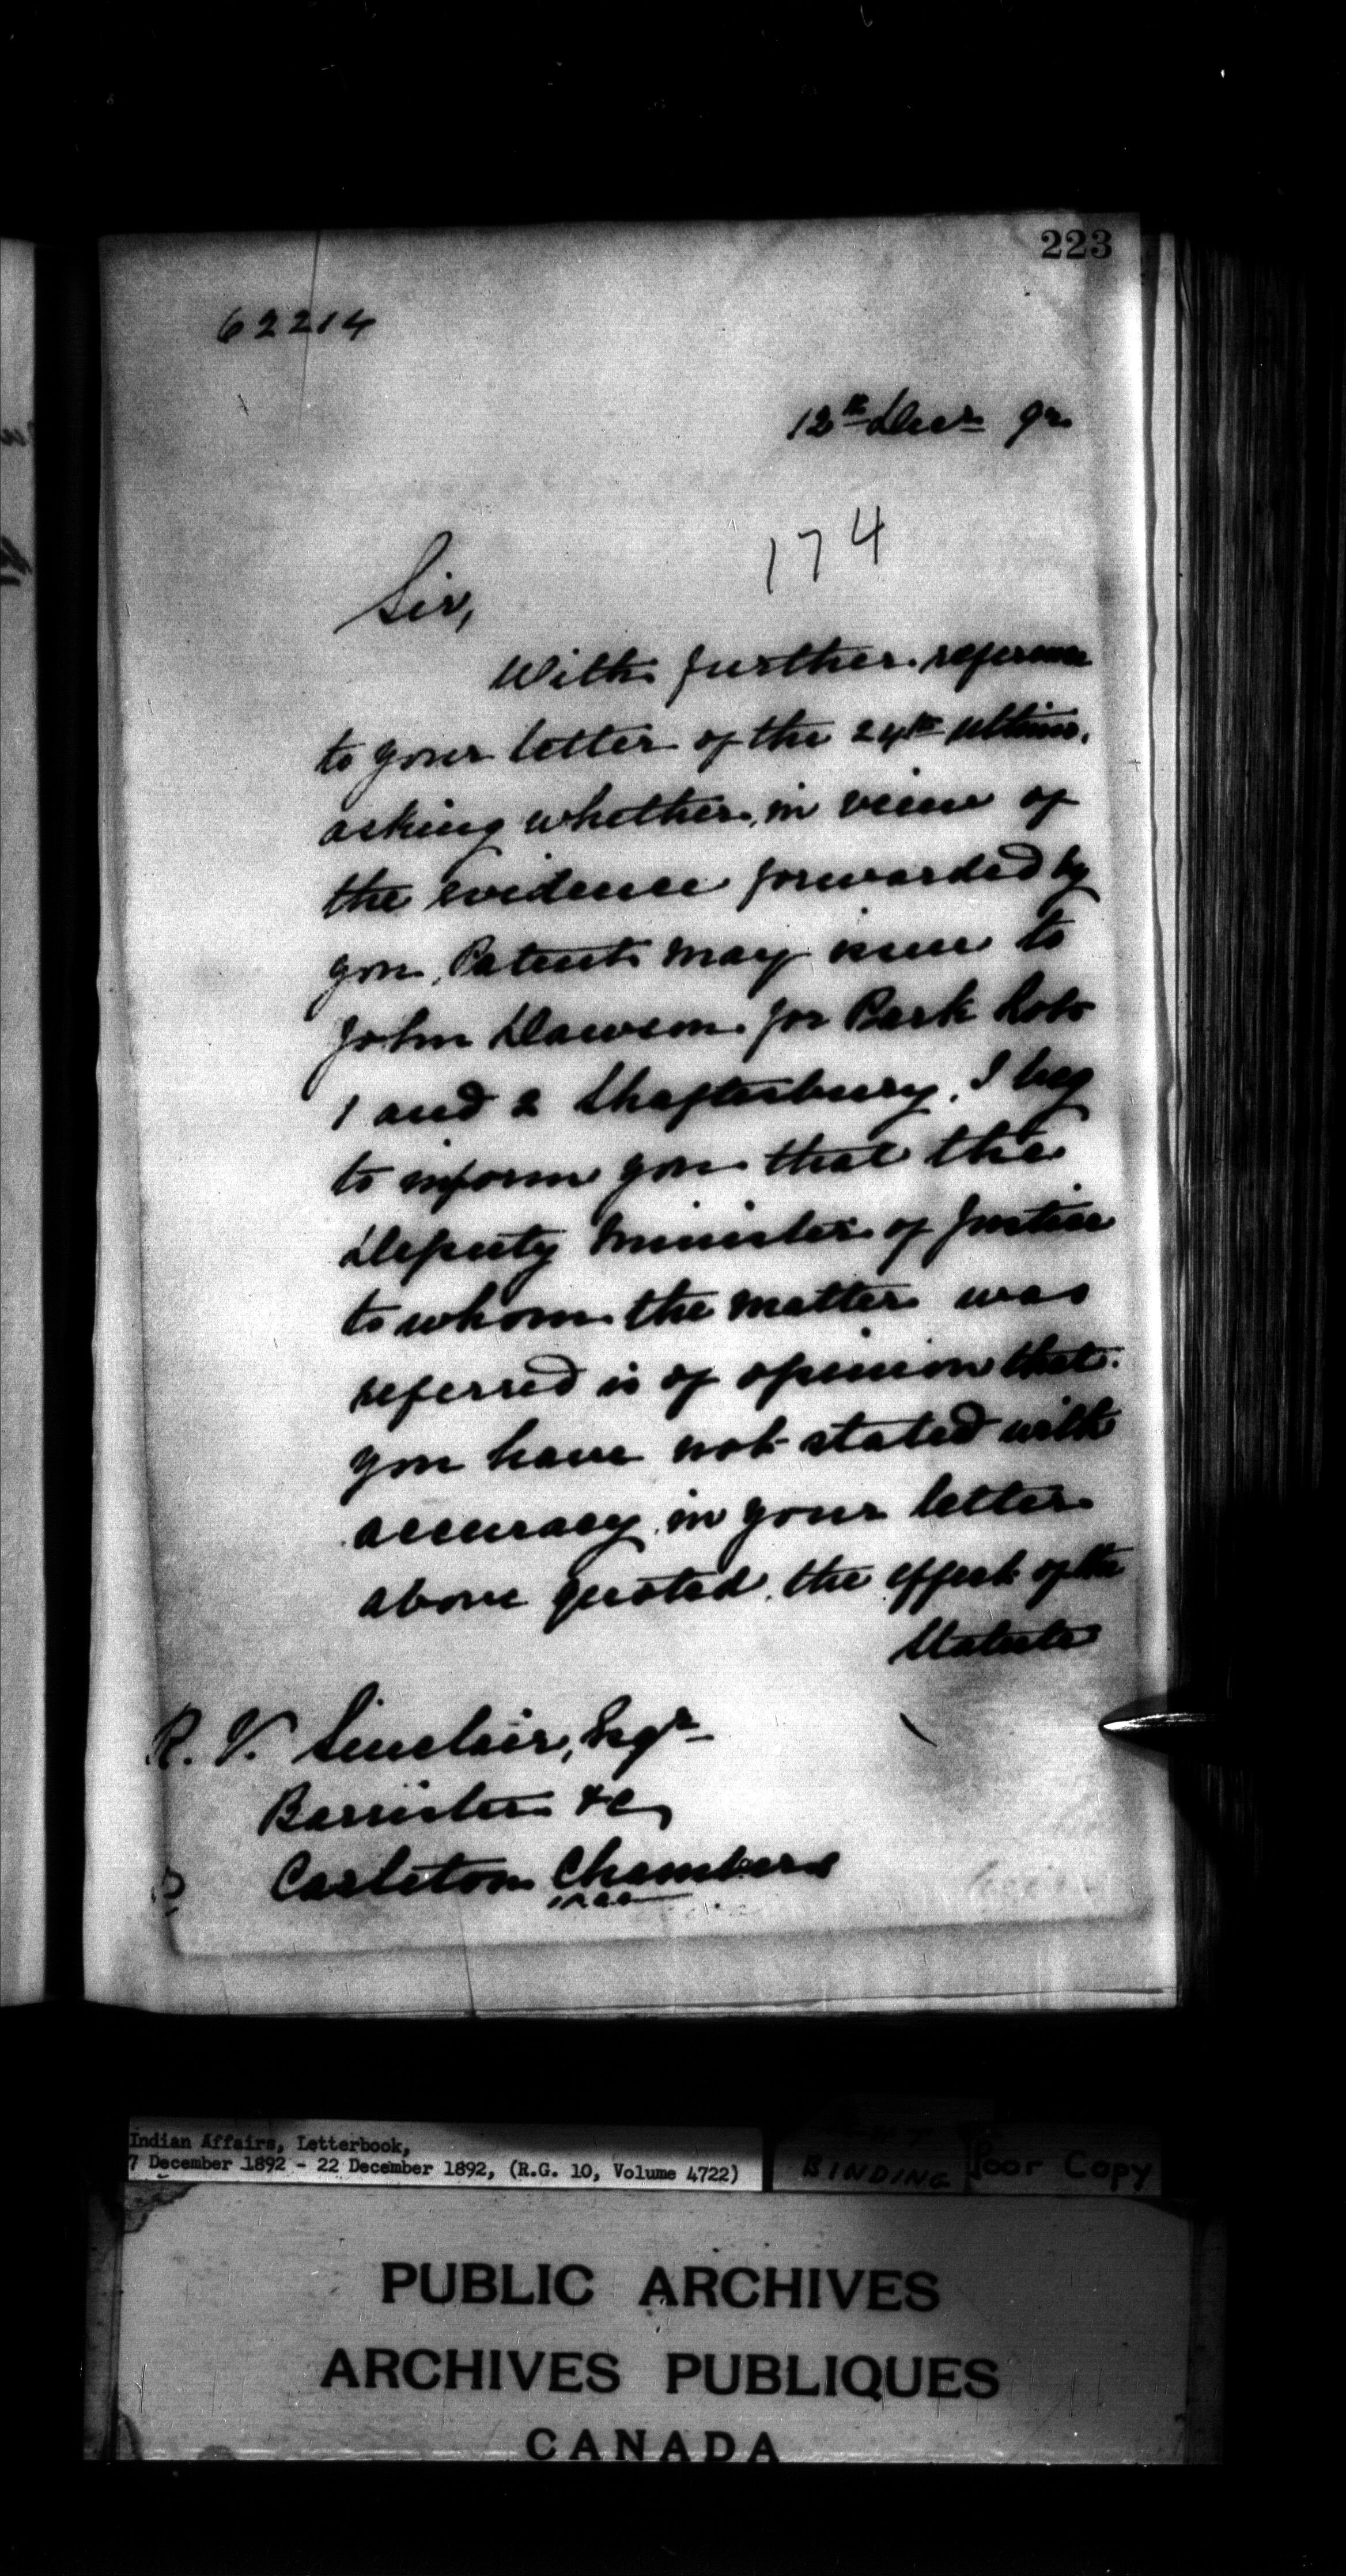 223
62214
12th Decr 92
174
Sir,
With further reference
to your letter of the 24th ultimo,
asking whether, in view of
the evidence forwarded by
you, Patent may issue to
John Dawson for Park Lots
1 and 2 Shaftesbury, I beg
to inform you that the
Deputy Minister of Justice
to whom the matter was
referred is of opinion that
you have not stated with
accuracy, in your letter
above quoted, the effect of the
Statute
R. V. Sinclair, Esqr
Barrister &c,
Carleton Chambers
Indian Affairs, Letterbook,
7 December 1892 - 22 December 1892, (R.G. 10, Volume 4722)
BINDING
Poor Copy
PUBLIC ARCHIVES
ARCHIVES PUBLIQUES
CANADA